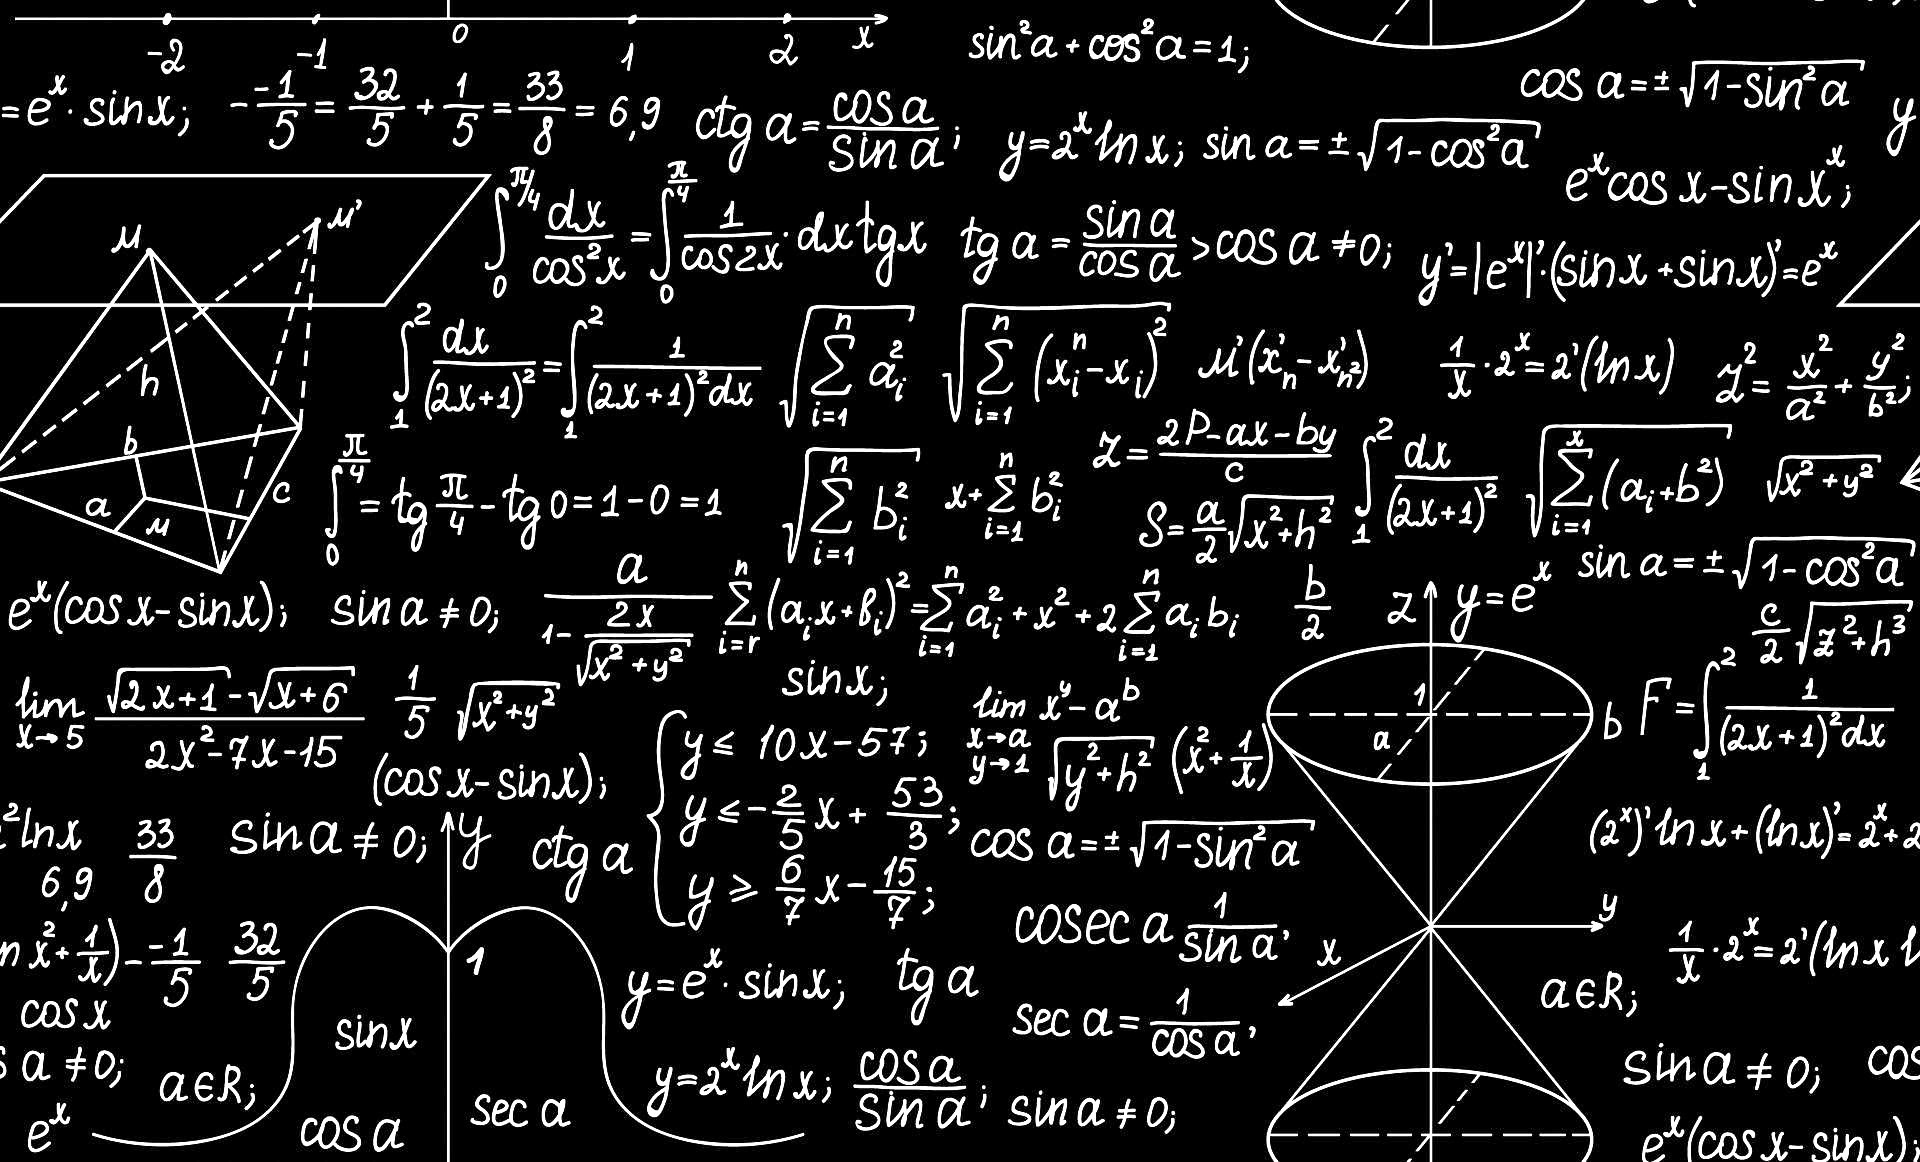 -2 -1 0 1 2 x
sin²a + cos²a = 1;
cos a = ± √(1-sin²a)
= eˣ · sin x; - -1/5 = 32/5 + 1/5 = 33/8 = 6,9
ctg a = cos a / sin a;
y = 2ˣ ln x; sin a = ± √(1-cos²a)
y
eˣ cos x - sin xˣ;
M M'
∫₀^π/4 dx / cos²x = ∫₀^π/4 1 / cos2x · dx tg x
tg a = sin a / cos a > cos a ≠ 0;
y' = |eˣ|' · (sin x + sin x)' = eˣ
∫₁² dx / (2x+1)² = ∫₁² 1 / (2x+1)² dx
√(∑ i=1 n aᵢ²)
√(∑ i=1 n (xᵢⁿ - xᵢ)²)
M' (x'ₙ - x'ₙ²)
1/x · 2ˣ = 2' (ln x)
z² = x²/a² + y²/b²;
h
b
a M c
∫₀^π/4 = tg π/4 - tg 0 = 1 - 0 = 1
√(∑ i=1 n bᵢ²)
x + ∑ i=1 n bᵢ²
z = 2P - ax - by / c
S = a/2 √(x²+h²)
∫₁² dx / (2x+1)²
√(∑ i=1 x (aᵢ + b²))
√(x² + y²)
sin a = ± √(1-cos²a)
eˣ (cos x - sin x); sin a ≠ 0;
a / 1 - 2x / √(x² + y²)
∑ i=r n (aᵢx + bᵢ)² = ∑ i=1 n aᵢ² + x² + 2 ∑ i=1 n aᵢ bᵢ
b/2
z y = eˣ
c/2 √(z² + h³)
lim x→5 √(2x+1) - √(x+6) / 2x² - 7x - 15
1/5 √(x² + y²)
sin x;
lim x→a y→1 xʸ - aᵇ
√(y² + h²) (x² + 1/x)
1 a b
F = ∫₁² 1 / (2x+1)² dx
(cos x - sin x);
y ≤ 10x - 57;
y ≤ - 2/5 x + 53/3;
y ≥ 6/7 x - 15/7;
² ln x 33/8 sin a ≠ 0; y ctg a
6,9
cos a = ± √(1-sin²a)
(2ˣ)' ln x + (ln x)' = 2ˣ + 2
cosec a 1 / sin a,
x y
n x² + 1/x) - -1/5 32/5
1
y = eˣ · sin x; tg a
1/x · 2ˣ = 2' (ln x
a ∈ R;
cos x
sin x
sec a = 1 / cos a,
a ≠ 0; a ∈ R;
y = 2ˣ ln x; cos a / sin a; sin a ≠ 0;
sin a ≠ 0; cos
eˣ cos a sec a
eˣ (cos x - sin x);